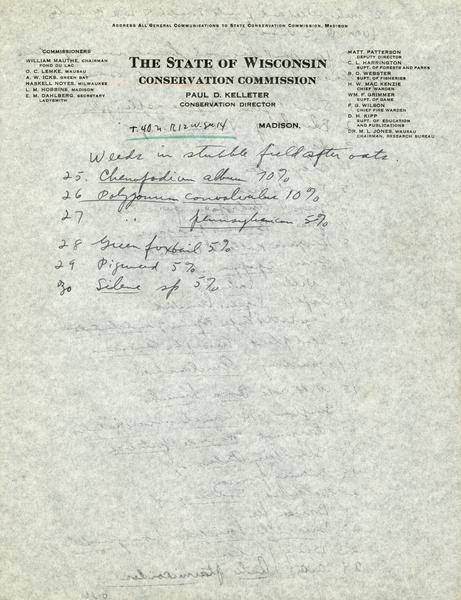 ADDRESS ALL GENERAL COMMUNICATIONS TO STATE CONSERVATION COMMISSION, MADISON
COMMISSIONERS
WILLIAM MAUTHE, CHAIRMAN
FOND DU LAC
O. C. LEMKE, WAUSAU
A. W. ICKS, GREEN BAY
HASKELL NOYES, MILWAUKEE
L. M. HOBBINS, MADISON
E. M. DAHLBERG, SECRETARY
LADYSMITH
THE STATE OF WISCONSIN
CONSERVATION COMMISSION
PAUL D. KELLETER
CONSERVATION DIRECTOR
MATT. PATTERSON
DEPUTY DIRECTOR
C. L. HARRINGTON
SUPT. OF FORESTS AND PARKS
B. O. WEBSTER
SUPT. OF FISHERIES
H. W. MAC KENZIE
CHIEF WARDEN
WM. F. GRIMMER
SUPT. OF GAME
F. G. WILSON
CHIEF FIRE WARDEN
D. H. KIPP
SUPT. OF EDUCATION
AND PUBLICATIONS
DR. M. L. JONES, WAUSAU
CHAIRMAN, RESEARCH BUREAU
T. 40. N. R12 W. S 14
MADISON.
Weeds in stubble field after oats.
25. Chenopodium album 70%
26 Polygonum convolvulus 10%
27 " pennsylvanicum 5%
28 Green foxtail 5%
29 Pigweed 5%
30 Silene sp 5%